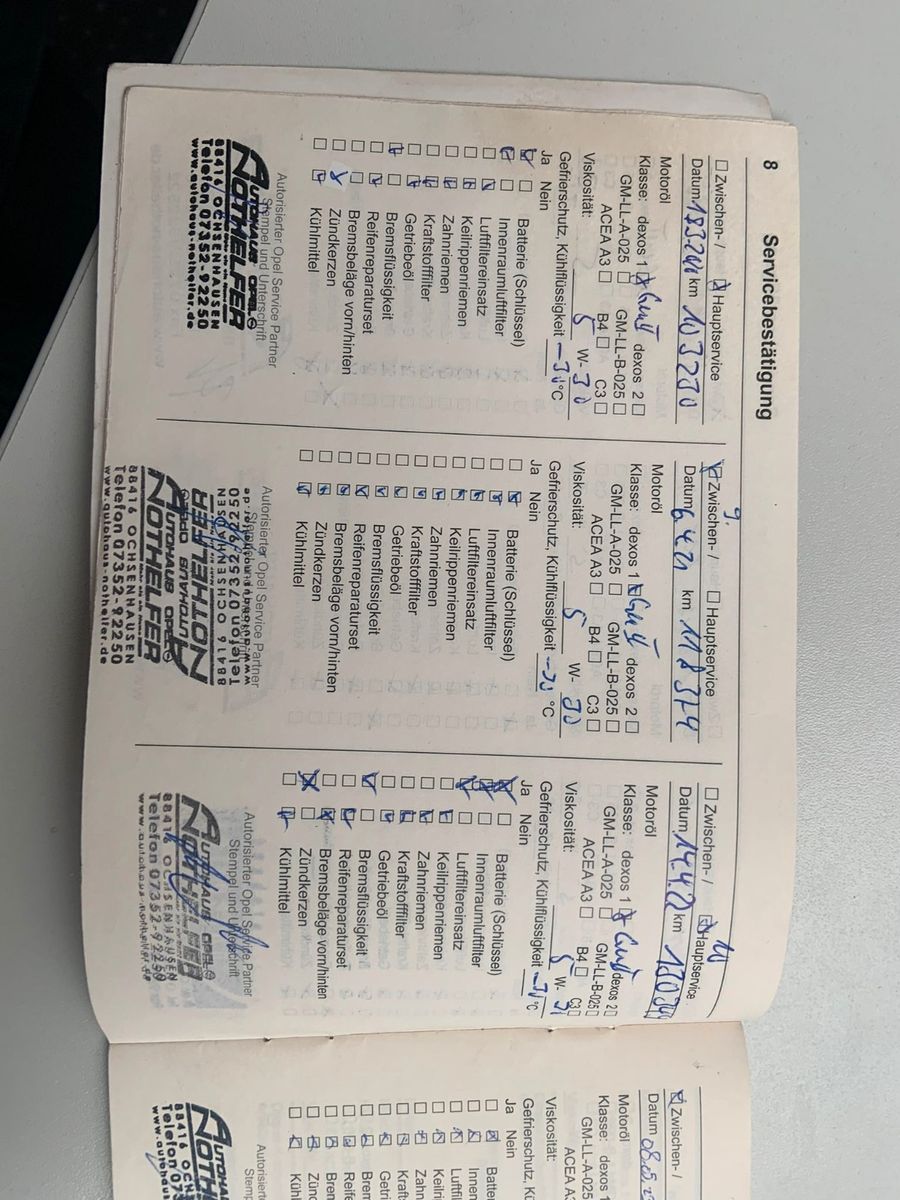 8 Servicebestätigung
Zwischen- / Hauptservice
Datum km 103230
Motoröl
Klasse: dexos 1 dexos 2
GM-LL-A-025 GM-LL-B-025
ACEA A3 B4 C3
Viskosität: 5 W- 30
Gefrierschutz, Kühlflüssigkeit °C
Ja Nein
Batterie (Schlüssel)
Innenraumluftfilter
Luftfiltereinsatz
Keilrippenriemen
Zahnriemen
Kraftstofffilter
Getriebeöl
Bremsflüssigkeit
Reifenreparaturset
Bremsbeläge vorn/hinten
Zündkerzen
Kühlmittel
Autorisierter Opel Service Partner
Stempel und Unterschrift
AUTOHAUS OPEL
NOTHELFER
88416 OCHSENHAUSEN
Telefon 07352-92250
www.autohaus-nothelfer.de
9.
Zwischen- / Hauptservice
Datum 6.4.21 km
Motoröl
Klasse: dexos 1 dexos 2
GM-LL-A-025 GM-LL-B-025
ACEA A3 B4 C3
Viskosität: 5 W- 30
Gefrierschutz, Kühlflüssigkeit °C
Ja Nein
Batterie (Schlüssel)
Innenraumluftfilter
Luftfiltereinsatz
Keilrippenriemen
Zahnriemen
Kraftstofffilter
Getriebeöl
Bremsflüssigkeit
Reifenreparaturset
Bremsbeläge vorn/hinten
Zündkerzen
Kühlmittel
Autorisierter Opel Service Partner
AUTOHAUS OPEL
NOTHELFER
88416 OCHSENHAUSEN
Telefon 07352-92250
www.autohaus-nothelfer.de
AUTOHAUS OPEL
NOTHELFER
88416 OCHSENHAUSEN
Telefon 07352-92250
www.autohaus-nothelfer.de
10
Zwischen- / Hauptservice
Datum 14.4.22 km
Motoröl
Klasse: dexos 1 dexos 2
GM-LL-A-025 GM-LL-B-025
ACEA A3 B4 C3
Viskosität: 5 W-
Gefrierschutz, Kühlflüssigkeit °C
Ja Nein
Batterie (Schlüssel)
Innenraumluftfilter
Luftfiltereinsatz
Keilrippenriemen
Zahnriemen
Kraftstofffilter
Getriebeöl
Bremsflüssigkeit
Reifenreparaturset
Bremsbeläge vorn/hinten
Zündkerzen
Kühlmittel
Autorisierter Opel Service Partner
Stempel und Unterschrift
AUTOHAUS OPEL
NOTHELFER
88416 OCHSENHAUSEN
Telefon 07352-92250
www.autohaus-nothelfer.de
Zwischen- /
Datum
Motoröl
Klasse: dexos 1
GM-LL-A-025
ACEA A
Viskosität:
Gefrierschutz, Kü
Ja Nein
Batte
Innen
Luftf
Keilri
Zahn
Kraft
Getri
Brem
Reife
Bren
Zünd
Kühl
Autorisierte
Stemp
AUTOHAU
NOTHE
88416 OC
Telefon 073
www.autoha